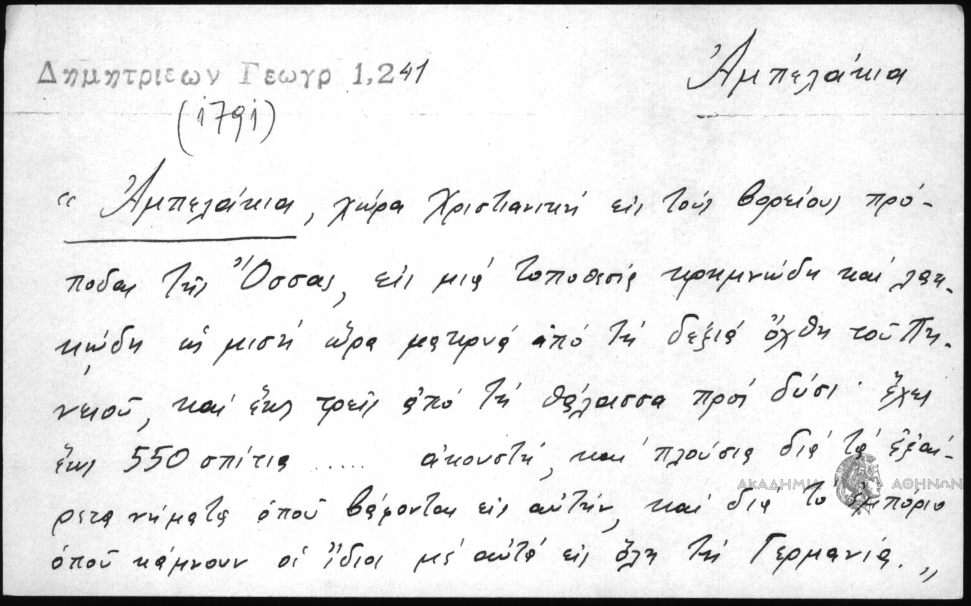 Δημητριεων Γεωγρ 1,241
Ἀμπελάκια
(1791)
“ Ἀμπελάκια, χώρα Χριστιανική εἰς τούς βορείους πρό-
ποδας τῆς Ὄσσας, εἰς μιά τοποθεσία κρημνώδη καί λακ-
κώδη ὡς μισή ὥρα μακρυά ἀπό τή δεξιά ὄχθη τοῦ Πη-
νειοῦ, καί ἕως τρεῖς ἀπό τή θάλασσα πρός δύσι· ἔχει
ἕως 550 σπίτια ..... ἀκουστή, καί πλούσια διά τά ἐξαί-
ρετα νήματα ὁποῦ βάφονται εἰς αὐτήν, καί διά τό ἐμπόριο
ὁποῦ κάμνουν οἱ ἴδιοι μέ αὐτά εἰς ὅλη τή Γερμανία. „
ΑΚΑΔΗΜΙΑ ΑΘΗΝΩΝ